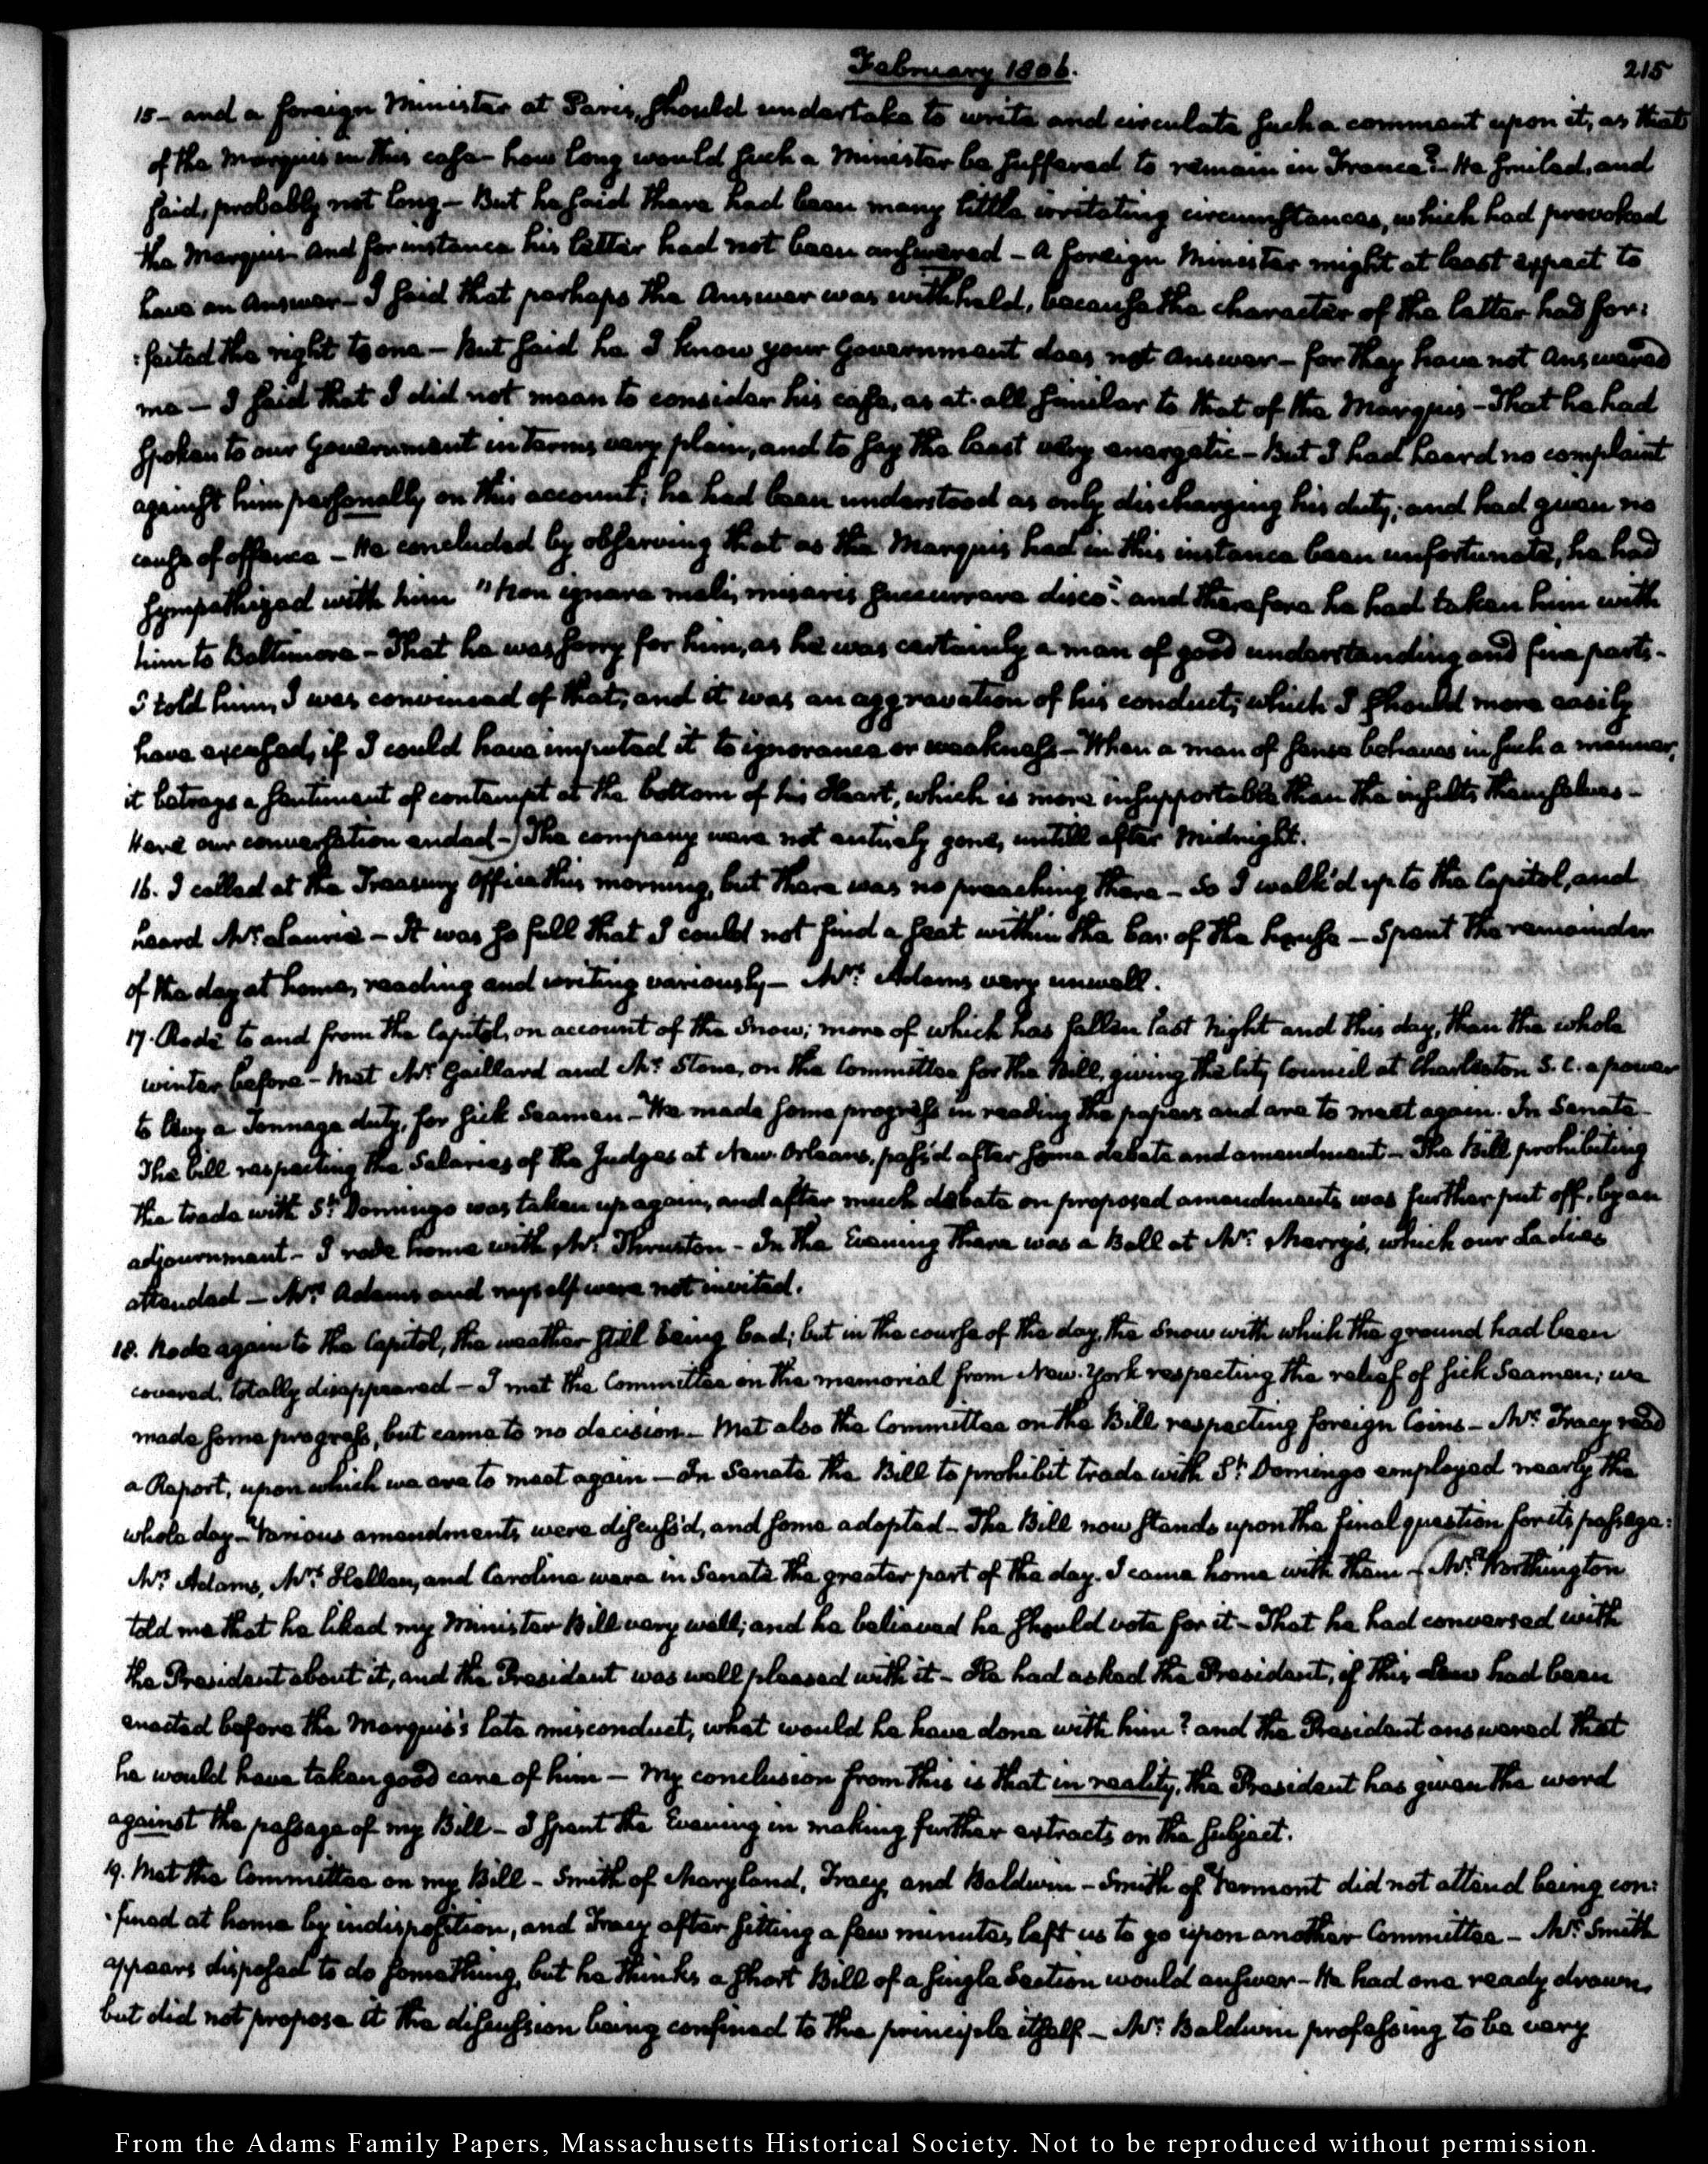 February 1806.
215
15 - and a foreign Minister at Paris, should undertake to write and circulate such a comment upon it, as that
of the Marquis in this case - how long would such a Minister be suffered to remain in France? - He smiled, and
said, probably not long - But he said there had been many little irritating circumstances, which had provoked
the Marquis - And for instance his letter had not been answered - A foreign Minister might at least expect to
have an answer - I said that perhaps the answer was withheld, because the character of the letter had for:
:feited the right to one - But said he I know your Government does not answer - for they have not answered
me - I said that I did not mean to consider his case, as at all similar to that of the Marquis - That he had
spoken to our Government in terms very plain, and to say the least very energetic - But I had heard no complaint
against him personally on this account; he had been understood as only discharging his duty; and had given no
cause of offence - He concluded by observing that as the Marquis had in this instance been unfortunate, he had
sympathized with him "Non ignara mali, miseris succurrere disco": and therefore he had taken him with
him to Baltimore - That he was sorry for him, as he was certainly a man of good understanding and fine parts -
I told him, I was convinced of that; and it was an aggravation of his conduct; which I should more easily
have excused, if I could have imputed it to ignorance or weakness - When a man of sense behaves in such a manner,
it betrays a sentiment of contempt at the bottom of his Heart, which is more insupportable than the insults themselves -
Here our conversation ended -) The company were not entirely gone, untill after Midnight.
16. I called at the Treasury Office this morning, but there was no preaching there - So I walk'd up to the Capitol, and
heard Mr. Laurie - It was so full that I could not find a seat within the bar of the house - Spent the remainder
of the day at home, reading and writing variously - Mrs. Adams very unwell.
17. Rode to and from the Capitol, on account of the Snow; more of which has fallen last Night and this day, than the whole
winter before - Met Mr. Gaillard and Mr. Stone, on the Committee for the Bill, giving the City Council at Charleston S. C. a power
to levy a Tonnage duty, for sick Seamen - We made some progress in reading the papers and are to meet again. In Senate -
The bill respecting the Salaries of the Judges at New-Orleans, pass'd after some debate and amendment - The Bill prohibiting
the trade with St. Domingo was taken up again, and after much debate on proposed amendments was further put off, by an
adjournment - I rode home with Mr. Thruston - In the Evening there was a Ball at Mr. Merry's, which our Ladies
attended - Mrs. Adams and myself were not invited.
18. Rode again to the Capitol, the weather still being bad; but in the course of the day, the Snow with which the ground had been
covered, totally disappeared - I met the Committee on the memorial from New-York respecting the relief of sick Seamen; we
made some progress, but came to no decision - Met also the Committee on the Bill respecting foreign Coins - Mr. Tracy read
a Report, upon which we are to meet again - In Senate the Bill to prohibit trade with St. Domingo employed nearly the
whole day - Various amendments were discuss'd, and some adopted - The Bill now stands upon the final question for its passage:
Mrs. Adams, Mrs. Hellen, and Caroline were in Senate the greater part of the day. I came home with them - (Mr. Worthington
told me that he liked my Minister Bill very well; and he believed he should vote for it - That he had conversed with
the President about it, and the President was well pleased with it - He had asked the President, if this Law had been
enacted before the Marquis's late misconduct, what would he have done with him? and the President answered that
he would have taken good care of him - My conclusion from this is that in reality, the President has given the word
against the passage of my Bill - I spent the Evening in making further extracts on the subject.
19. Met the Committee on my Bill - Smith of Maryland, Tracy, and Baldwin - Smith of Vermont did not attend being con:
:fined at home by indisposition, and Tracy after sitting a few minutes, left us to go upon another Committee - Mr. Smith
appears disposed to do something, but he thinks a short Bill of a single Section would answer - He had one ready drawn,
but did not propose it the discussion being confined to the principle itself - Mr. Baldwin professing to be very
From the Adams Family Papers, Massachusetts Historical Society. Not to be reproduced without permission.